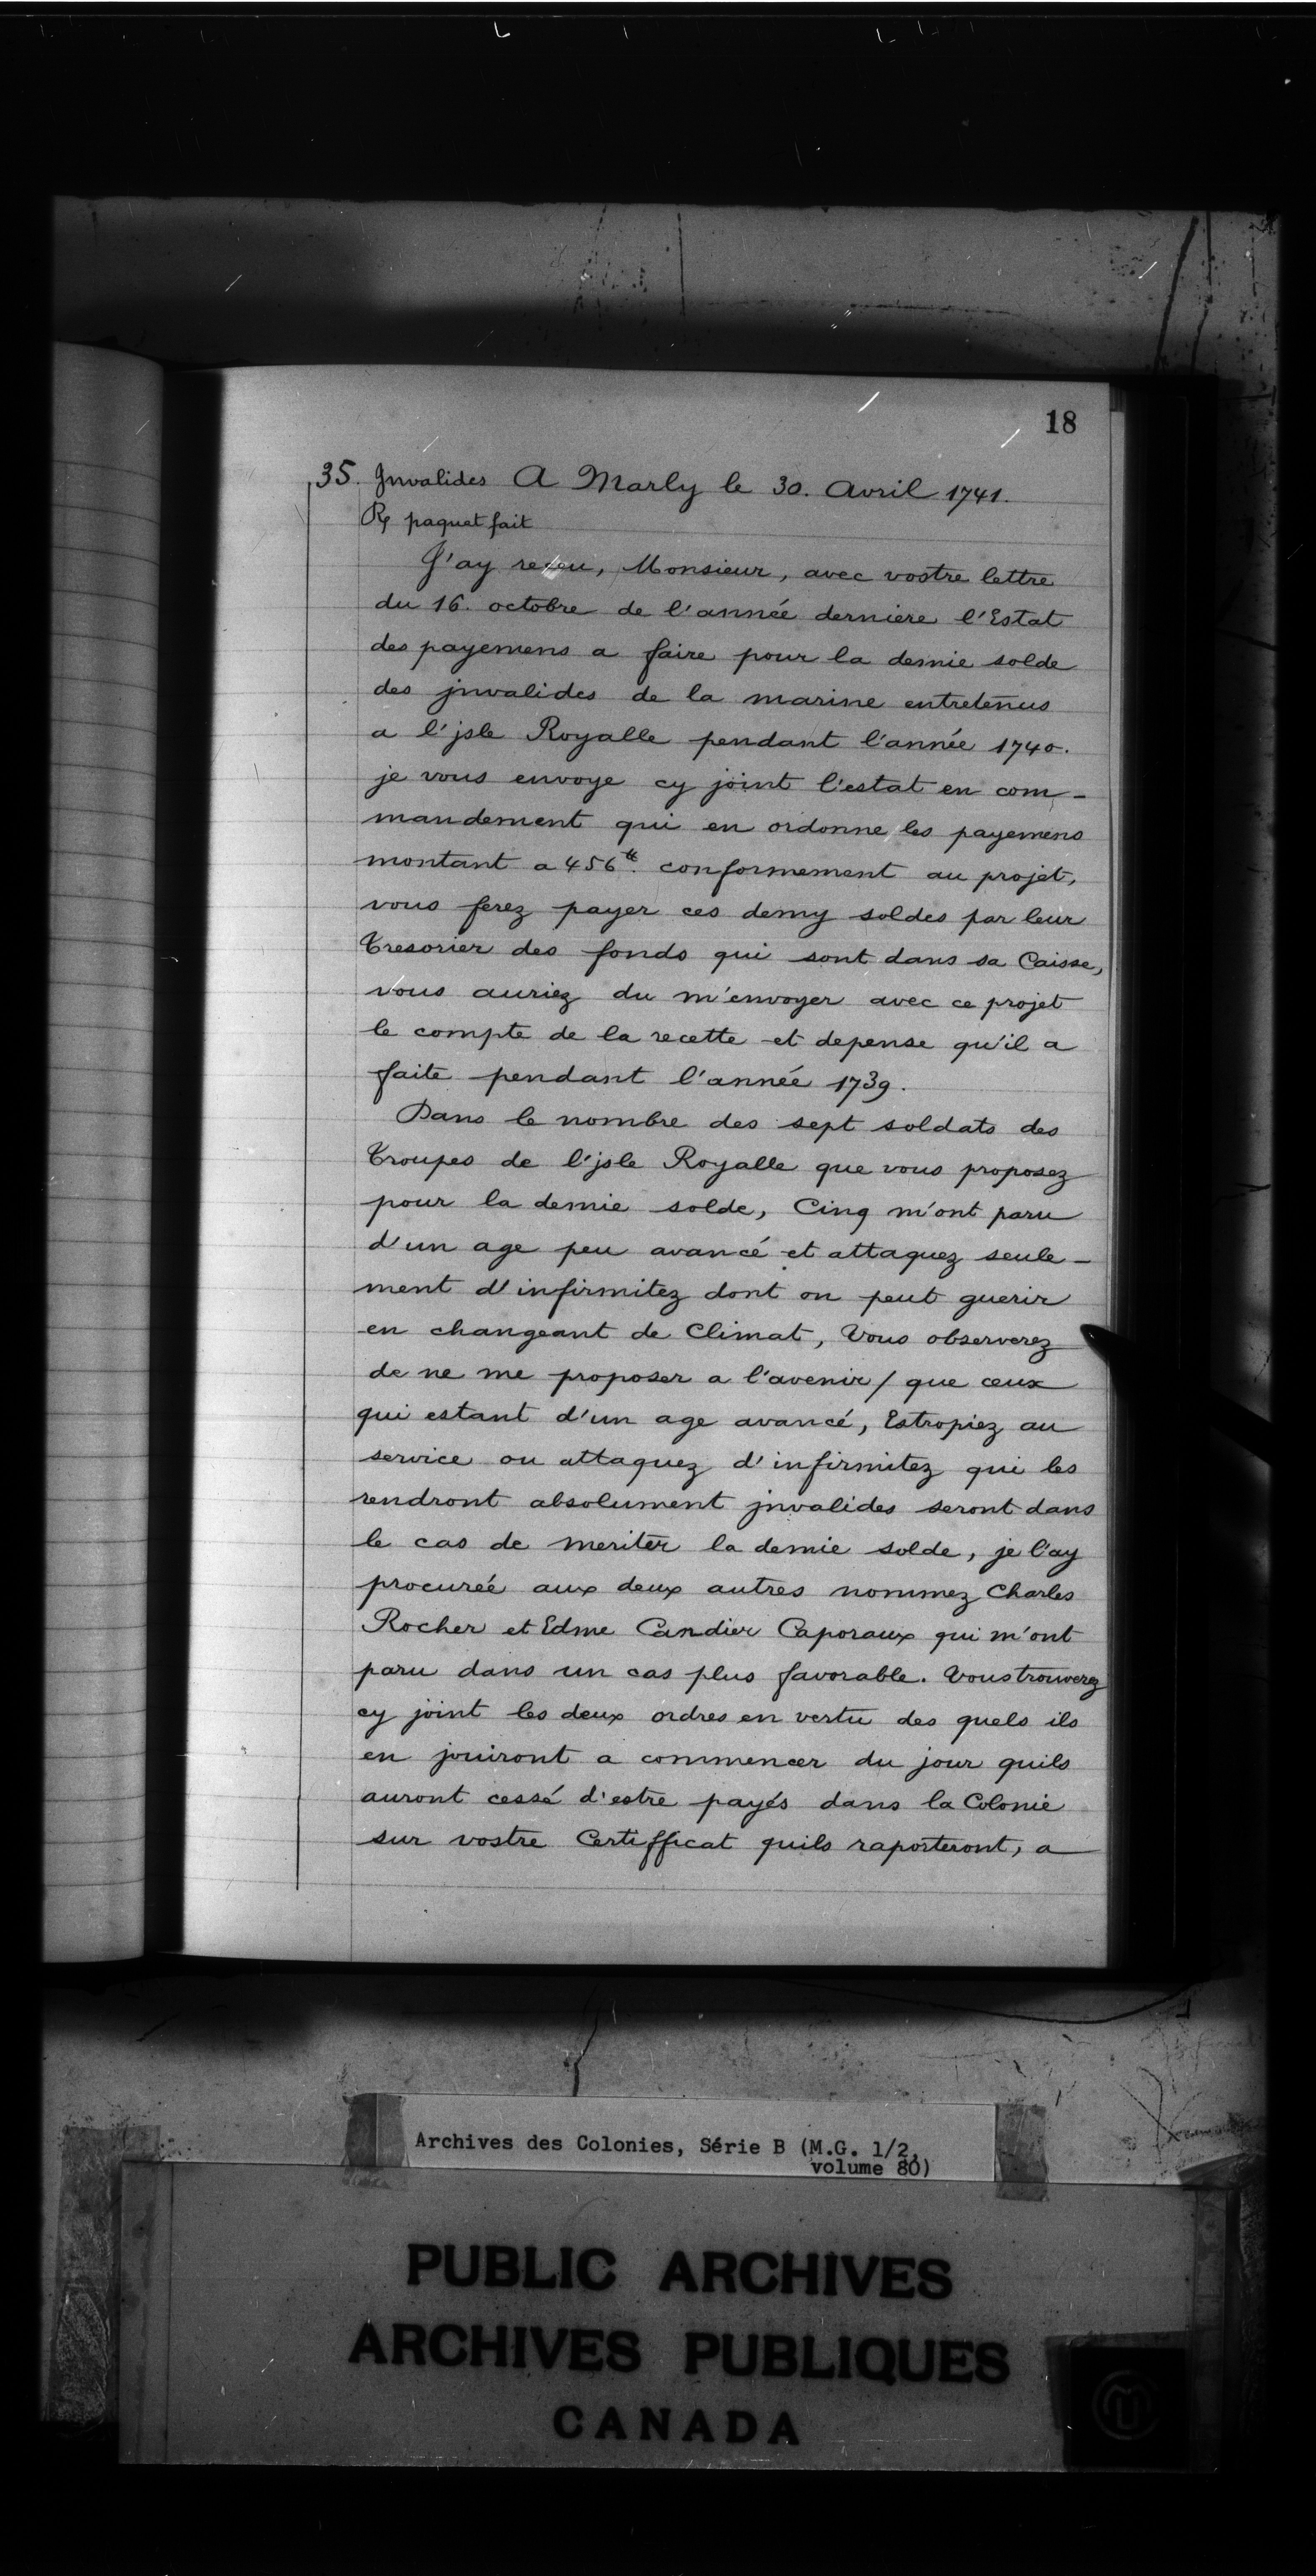 18
35. Jnvalides A Marly le 30. Avril 1741.
Rp paquet fait
J'ay receu, Monsieur, avec vostre lettre
du 16. octobre de l'année derniere l'Estat
des payemens a faire pour la demie solde
des jnvalides de la marine entretenus
a l'jsle Royalle pendant l'année 1740.
je vous envoye cy joint l'estat en com-
mandement qui en ordonne les payemens
montant a 456tt. conformement au projet,
vous ferez payer ces demy soldes par leur
Tresorier des fonds qui sont dans sa Caisse,
vous auriez du m'envoyer avec ce projet
le compte de la recette et depense qu'il a
faite pendant l'année 1739.
Dans le nombre des sept soldats des
Troupes de l'jsle Royalle que vous proposez
pour la demie solde, Cinq m'ont paru
d'un age peu avancé et attaquez seule-
ment d'infirmitez dont on peut guerir
en changeant de Climat, Vous observerez
de ne me proposer a l'avenir / que ceux
qui estant d'un age avancé, Estropiez au
service ou attaquez d'infirmitez qui les
rendront absolument jnvalides seront dans
le cas de meriter la demie solde, je l'ay
procureé aux deux autres nommez Charles
Rocher et Edme Candier Caporaux qui m'ont
paru dans un cas plus favorable. Vous trouverez
cy joint les deux ordres en vertu des quels ils
en jouiront a commencer du jour quils
auront cessé d'estre payés dans la Colonie
sur vostre Certifficat quils raporteront, a
Archives des Colonies, Série B (M.G. 1/2,
volume 80)
PUBLIC ARCHIVES
ARCHIVES PUBLIQUES
CANADA